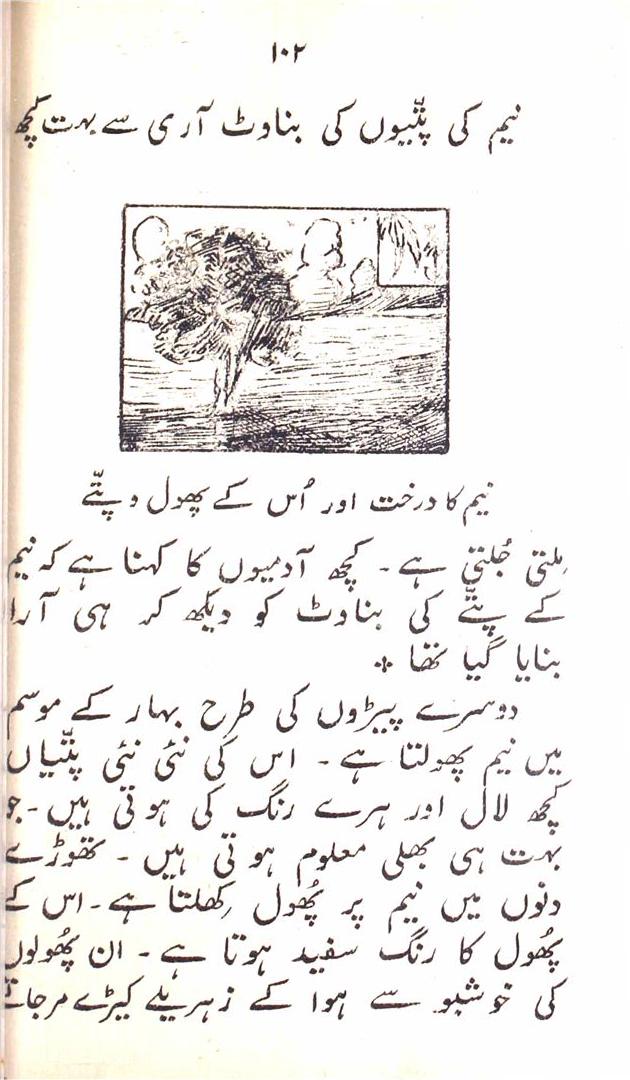 ۱۰۲
نیم کی پتّیوں کی بناوٹ آری سے بہت کچھ
نیم کا درخت اور اُس کے پھول و پتّے
مِلتی جُلتی ہے - کچھ آدمیوں کا کہنا ہے کہ نیم
کے پتّے کی بناوٹ کو دیکھ کر ہی آرا
بنایا گیا تھا ÷
دوسرے پیڑوں کی طرح بہار کے موسم
میں نیم پھولتا ہے - اس کی نئی نئی پتّیاں
کچھ لال اور ہرے رنگ کی ہوتی ہیں - جو
بہت ہی بھلی معلوم ہوتی ہیں - تھوڑے
دنوں میں نیم پر پھُول کِھلتا ہے - اس کے
پھُول کا رنگ سفید ہوتا ہے - ان پھُولوں
کی خوشبو سے ہوا کے زہریلے کیڑے مرجاتے